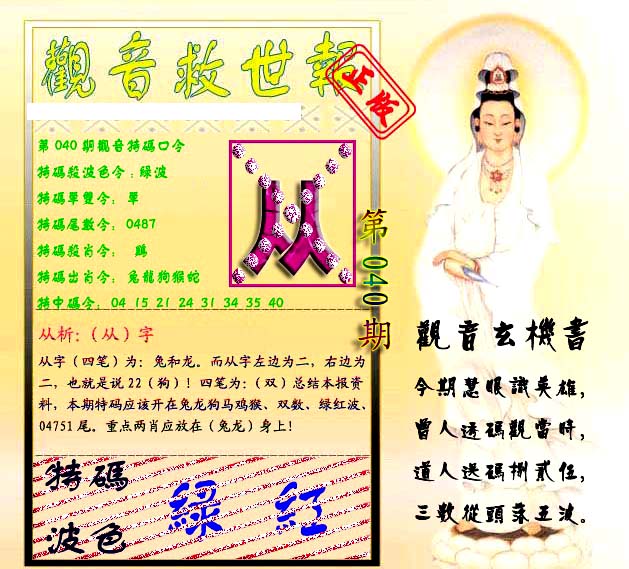 觀音救世報
正版
第040期觀音特碼口令
特碼殺波色令:綠波
特碼單雙令: 單
特碼尾數令: 0487
特碼殺肖令: 鷄
特碼出肖令: 兔龍狗猴蛇
特中碼令: 04 15 21 24 31 34 35 40
从
第040期
从析:（从）字
从字（四笔）为：兔和龙。而从字左边为二，右边为
二，也就是说22（狗）！四笔为：（双）总结本报资
料，本期特码应该开在兔龙狗马鸡猴、双数、绿红波、
04751尾。重点两肖应放在（兔龙）身上！
特碼
波色
綠 紅
觀音玄機書
今期慧眼識英雄,
曾人透碼觀當時,
道人送碼捌貳伍,
三數從頭落五波。